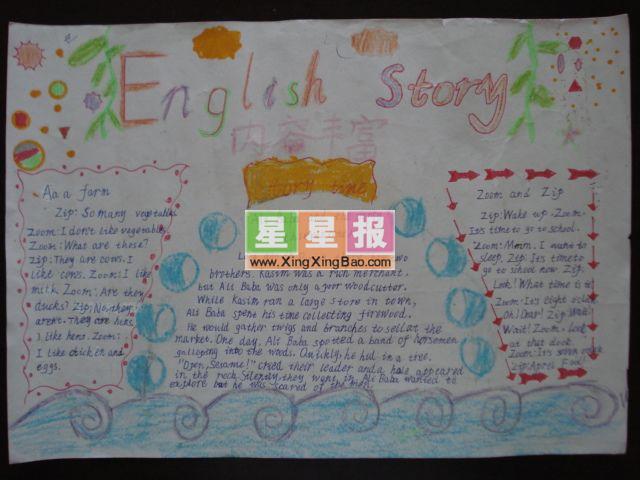 English Story
内容丰富
story time
Aa a farm
Zip: So many vegetables
Zoom: I don't like vegetables
Zoom: What are those?
Zip: They are cows. I
like cows. Zoom: I like
milk Zoom: Are they
ducks? Zip: No, they
aren't. They are hens.
I like hens. Zoom:
I like chicken and
eggs.
星星报
www.XingXingBao.com
two
brothers. Kasim was a rich merchant.
but Ali Baba was only a poor woodcutter.
While Kasim ran a large store in town,
Ali Baba spent his time collecting firewood.
He would gather twigs and branches to sell at the
market. One day, Ali Baba spotted a band of horsemen
galloping into the woods. Quickly, he hid in a tree.
"Open, Sesame!" cried their leader and a hole appeared
in the rock. Silently, they went in. Ali Baba wanted to
explore but he was scared of the men.
Zoom and Zip
Zip: Wake up. Zoom.
It's time to go to school.
Zoom: Mmm. I want to
sleep, Zip. Zip: It's time to
go to school now. Zip:
Look! What time is it?
Zoom: It's eight o'clock.
Oh! Dear! Zip: Wait!
Wait! Zoom: Look
at that clock.
Zoom: It's seven
Zip: April Fool